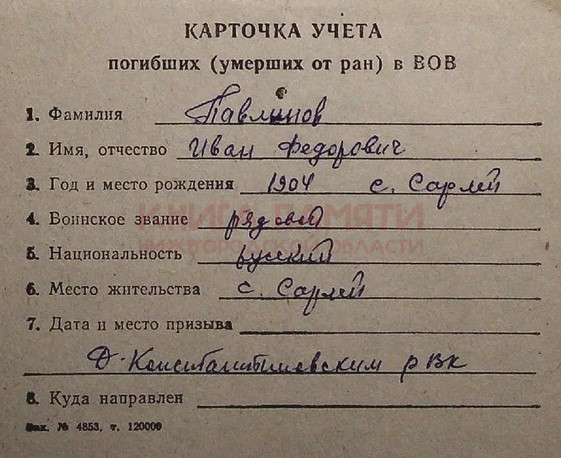 КАРТОЧКА УЧЕТА
погибших (умерших от ран) в ВОВ
1. Фамилия Павлинов
2. Имя, отчество Иван Федорович
3. Год и место рождения 1904 с. Сарлей
4. Воинское звание рядовой
КНИГА ПАМЯТИ
НИЖЕГОРОДСКОЙ ОБЛАСТИ
5. Национальность русский
6. Место жительства с. Сарлей
7. Дата и место призыва
Д-Константиновским РВК
8. Куда направлен
Зак. № 4853, т. 120000